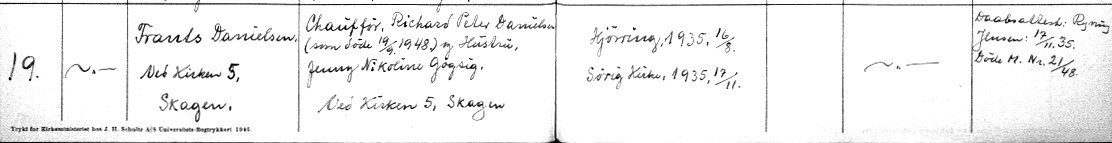 19.
〜.—
Frants Danielsen.
Ved Kirken 5,
Skagen.
Chauffør, Richard Peter Danielsen
(som døde 19/9 1948.) og Hustru,
Jenny Nikoline Gøgsig.
Ved Kirken 5, Skagen
Hjørring, 1935, 16/8.
Sørig Kirke, 1935, 17/11.
〜.—
Daabsattest:
Jensen: 17/11.35.
Døde M. Nr. 21/48.
Trykt for Kirkeministeriet hos J. H. Schultz A/S Universitets-Bogtrykkeri 1946.